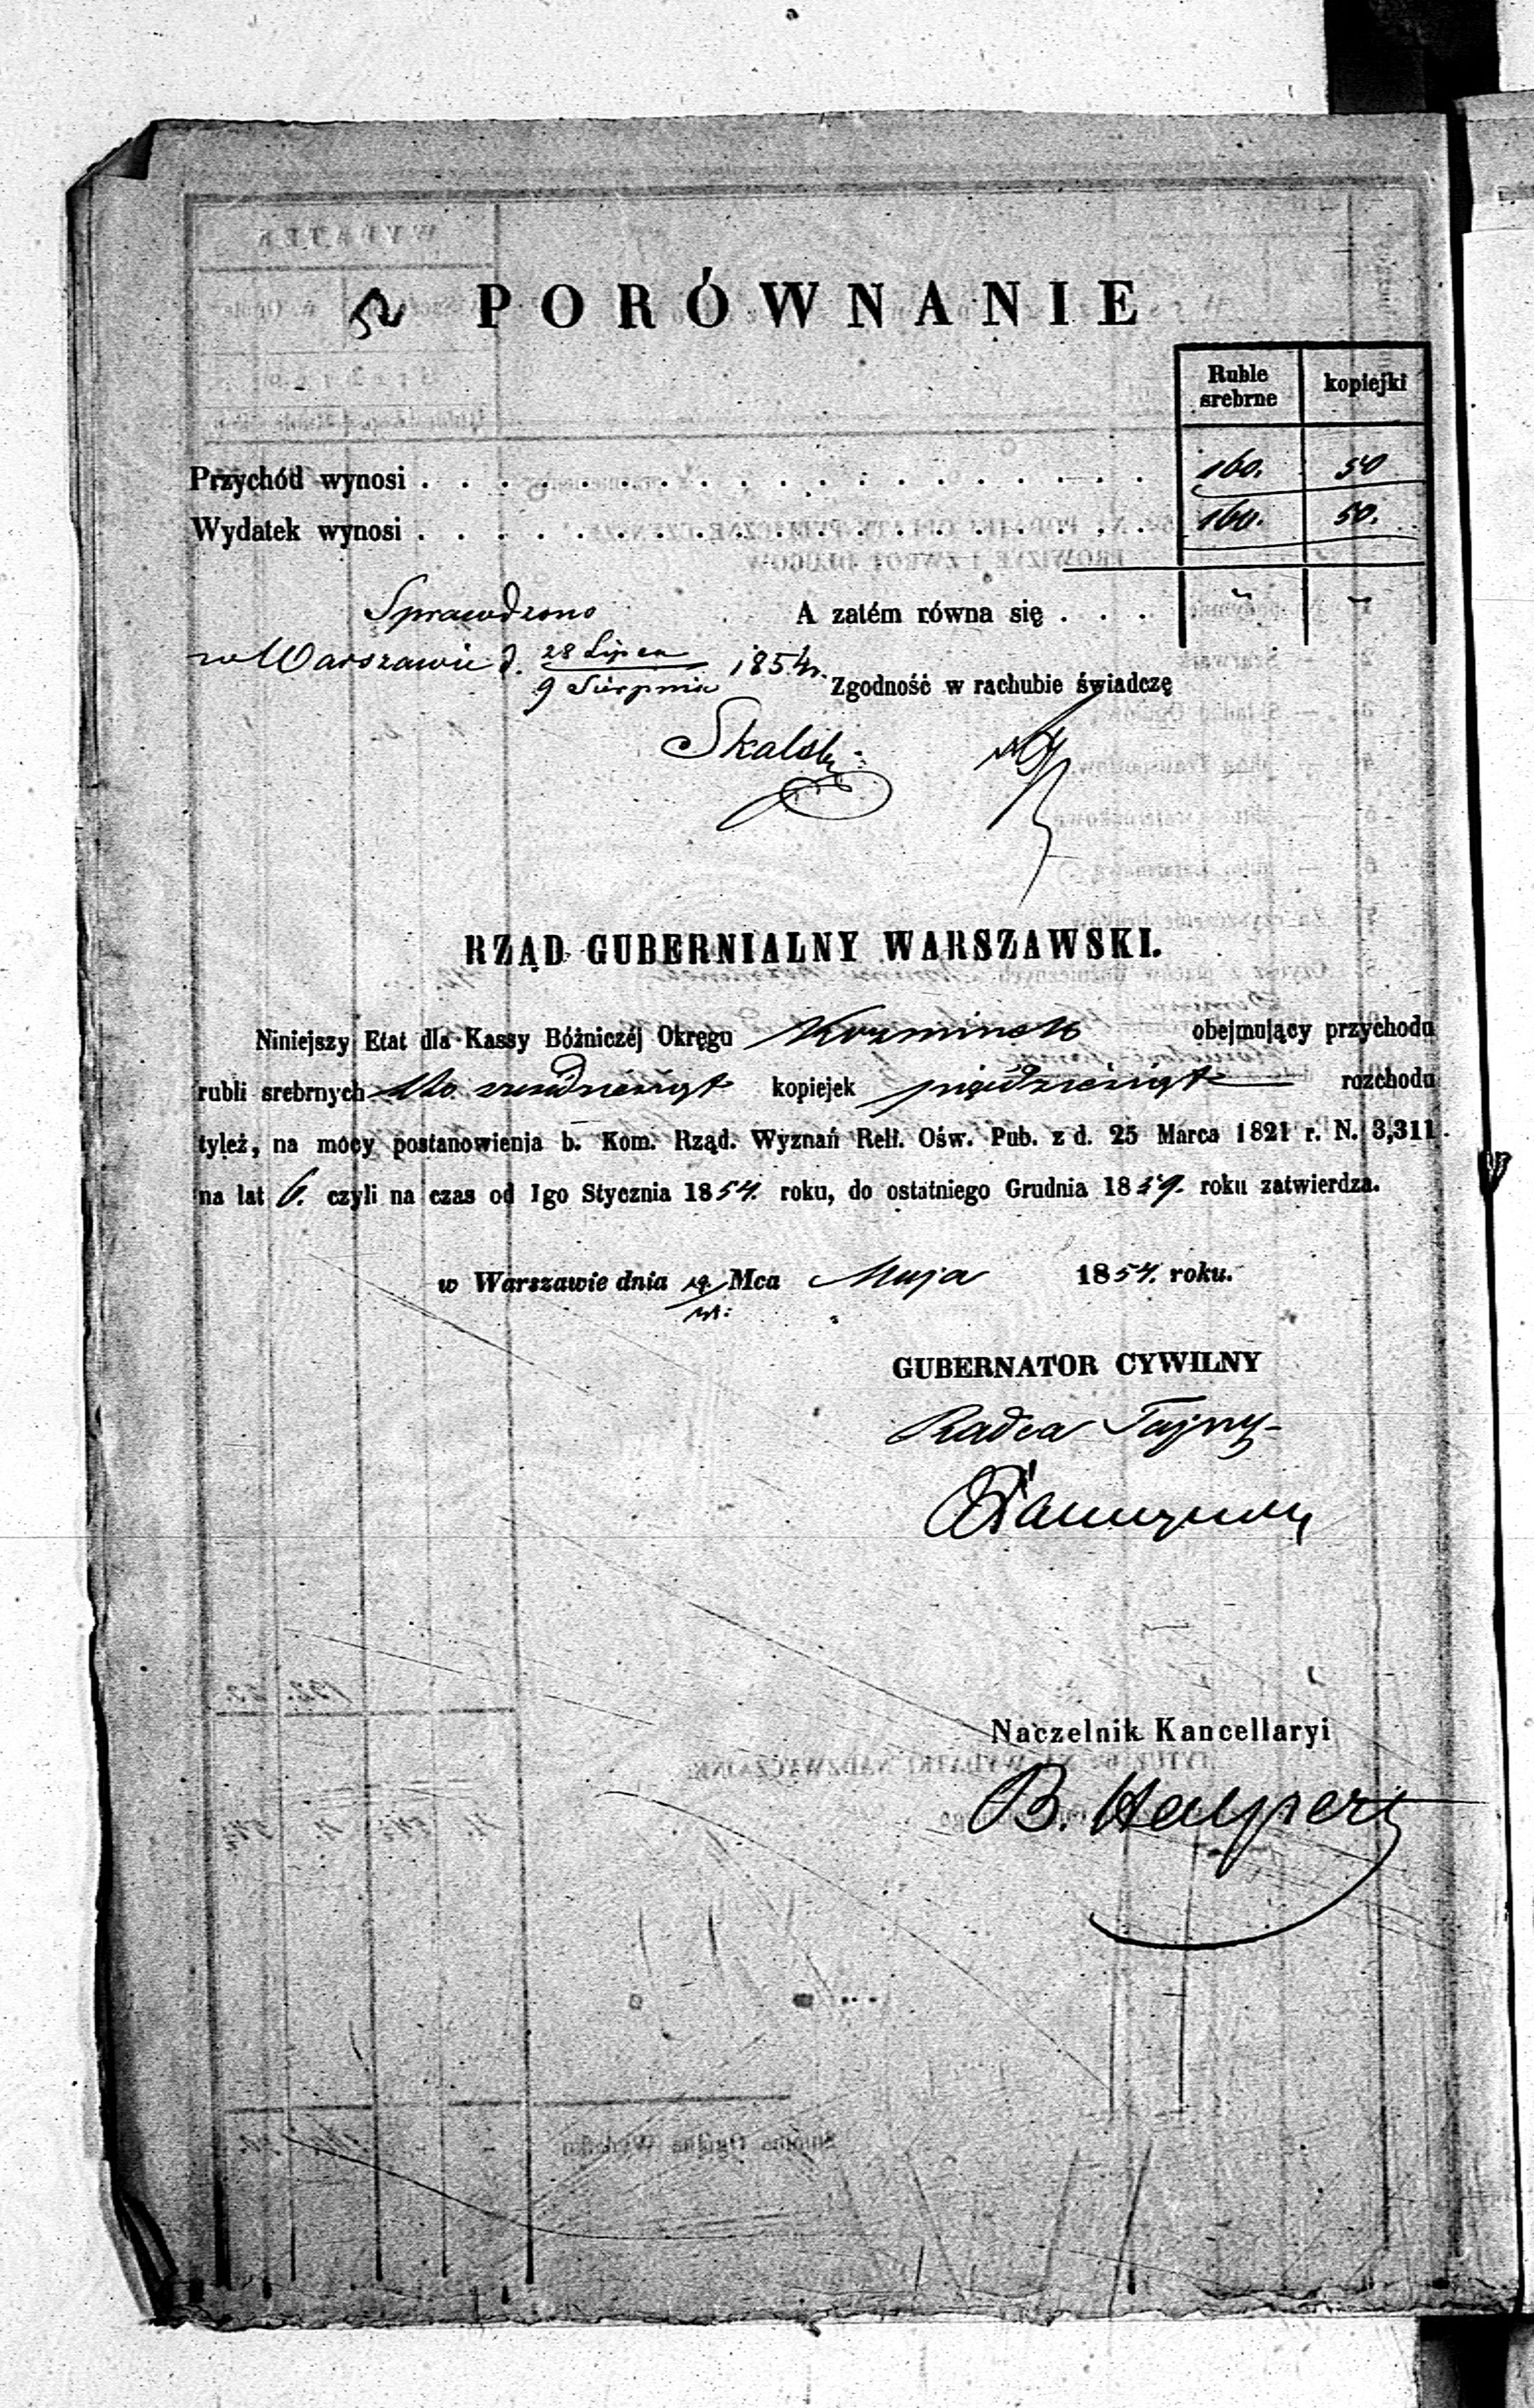 PORÓWNANIE
Ruble srebrne kopiejki
Przychód wynosi . . . . . . . . . . . . . . . . . . . 160. 50
Wydatek wynosi . . . . . . . . . . . . . . . . . . . 160. 50.
Sprawdzono A zatém równa się . . . „ „
w Warszawie d. 28 Lipca / 9 Sierpnia 1854 r. Zgodność w rachubie świadczę
Skalski
RZĄD GUBERNIALNY WARSZAWSKI.
Niniejszy Etat dla Kassy Bóżniczéj Okręgu obejmujący przychodu
rubli srebrnych kopiejek pięćdziesiąt rozchodu
tyleż, na mocy postanowienia b. Kom. Rząd. Wyznań Reli. Ośw. Pub. z d. 25 Marca 1821 r. N. 3,311.
na lat 6. czyli na czas od Igo Stycznia 1854. roku, do ostatniego Grudnia 1859. roku zatwierdza.
w Warszawie dnia Mca Maja 1854. roku.
GUBERNATOR CYWILNY
Radca Tajny
Naczelnik Kancellaryi
B. Halpert